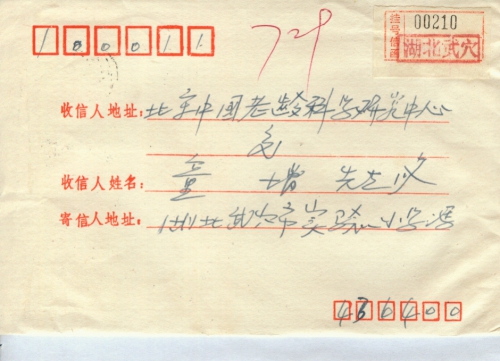 100011
729
挂号信函
00210
湖北武穴
收信人地址:北京中国老龄科学研究中心
收信人姓名:童 先生收
寄信人地址:湖北武穴市实验小学
436400